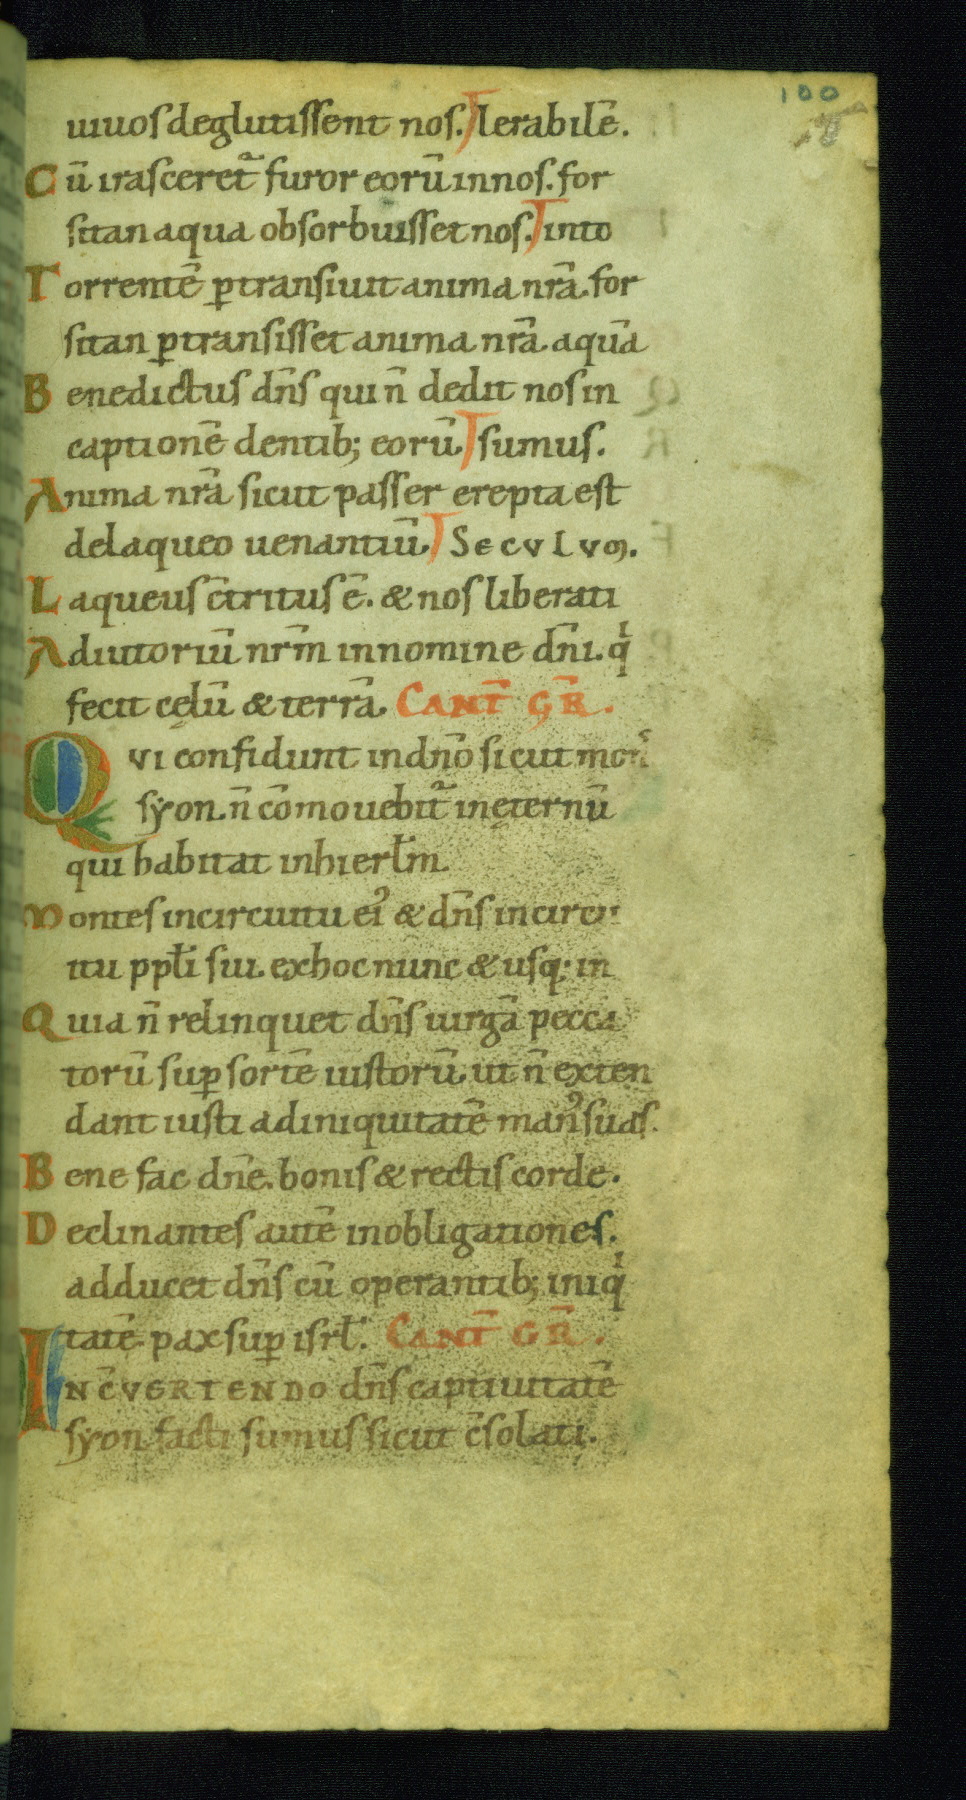 100
uiuos deglutissent nos. lerabilē.
Cū irasceret᷑ furor eorū in nos. for
sitan aqua obsorbuisset nos. into
Torrentē ꝑtransiuit anima nr̄a. for
sitan ꝑtransisset anima nr̄a. aquā
Benedictus dn̄s qui n̄ dedit nos in
captionē dentib; eorū. sumus.
Anima nr̄a sicut passer erepta est
de laqueo uenantiū. Seculum.
Laqueus c̄tritus ē. & nos liberati
Adiutoriū nr̄m in nomine dn̄i. qⁱ
fecit cęlū & terrā. CANT̄ GR̄.
QVI confidunt in dn̄o sicut monſ
syon. n̄ cōmouebit᷑ in ęternū
qui habitat in hierl̄m.
Montes in circuitu ei᾿ & dn̄s in circu
itu ppl̄i sui. ex hoc nunc & usq; in
Quia n̄ relinquet dn̄s uirgā pecca
torū suꝑ sortē iustorū. ut n̄ exten
dant iusti ad iniquitatē man᾿ suas.
Bene fac dn̄e. bonis & rectis corde.
Declinantes autē in obligationes.
adducet dn̄s cū operantib; iniqⁱ
tatē. pax suꝑ isrl̄. CANT̄ GR̄.
IN C̄VERTENDO dn̄s captiuitatē
syon. facti sumus sicut c̄solati.